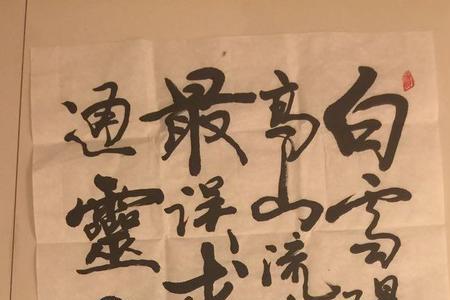 白雪
高山流
最误
通靈